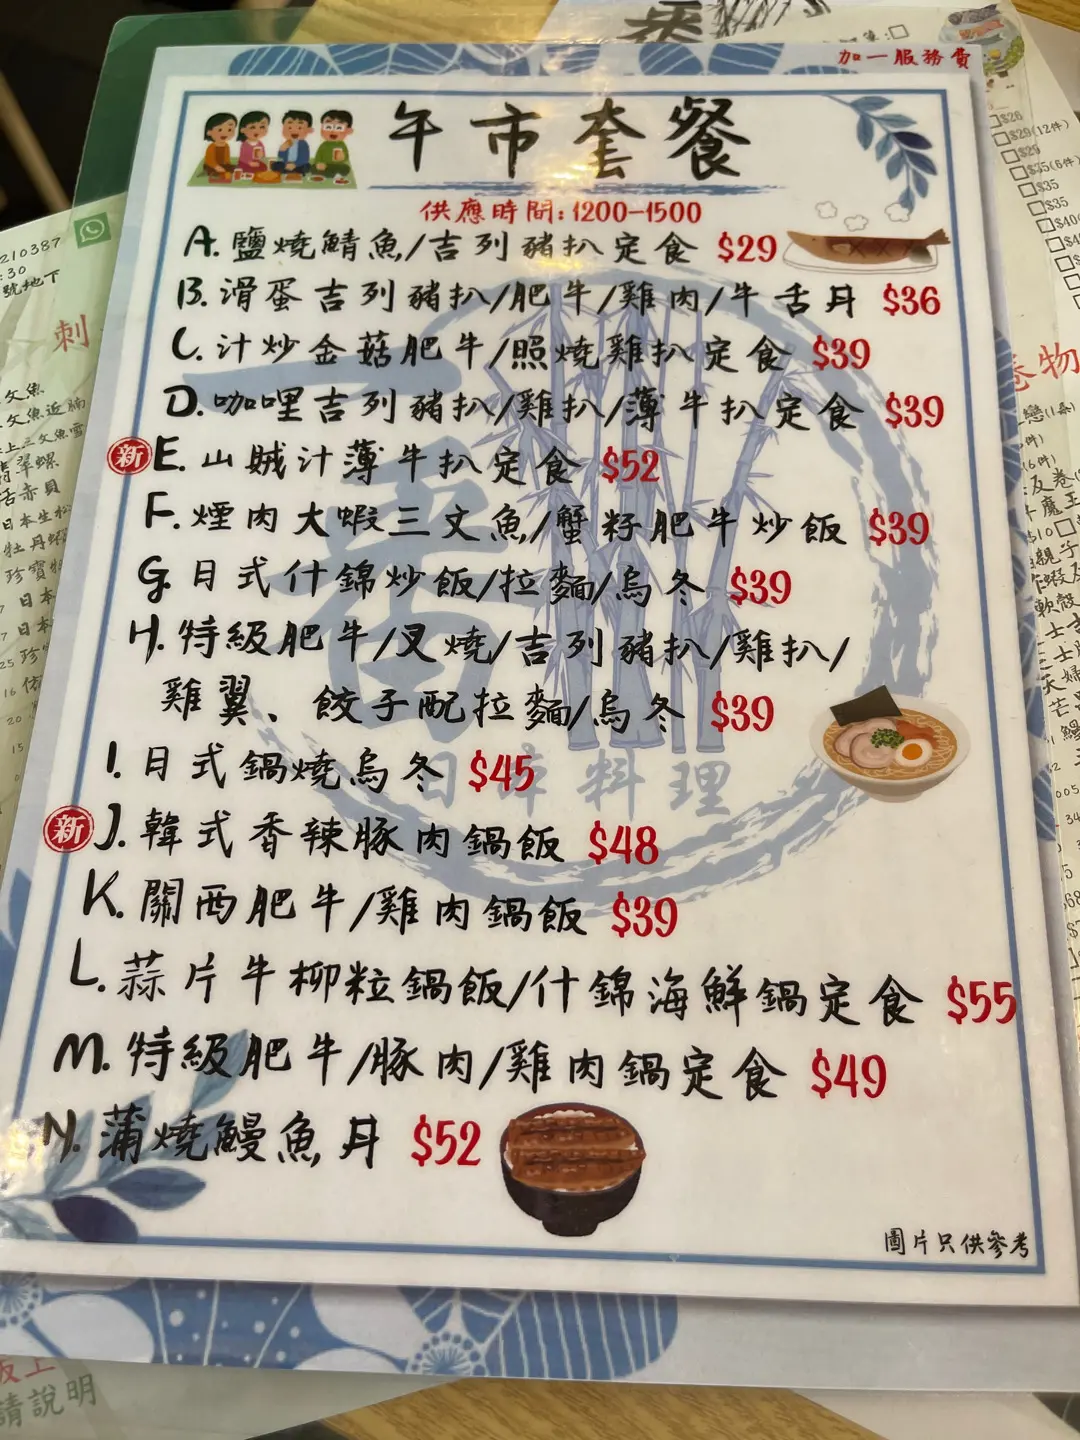 加一服務費
午市套餐
供應時間:1200-1500
A.鹽燒鯖魚/吉列豬扒定食 $29
B.滑蛋吉列豬扒/肥牛/雞肉/牛舌丼 $36
C.汁炒金菇肥牛/照燒雞扒定食 $39
D.咖哩吉列豬扒/雞扒/薄牛扒定食 $39
新 E.山賊汁薄牛扒定食 $52
F.煙肉大蝦三文魚/蟹籽肥牛炒飯 $39
G.日式什錦炒飯/拉麵/烏冬 $39
H.特級肥牛/叉燒/吉列豬扒/雞扒/
雞翼、餃子配拉麵/烏冬 $39
I.日式鍋燒烏冬 $45
新 J.韓式香辣豚肉鍋飯 $48
K.關西肥牛/雞肉鍋飯 $39
L.蒜片牛柳粒鍋飯/什錦海鮮鍋定食 $55
M.特級肥牛/豚肉/雞肉鍋定食 $49
N.蒲燒鰻魚丼 $52
圖片只供參考
210387
:30
號地下
刺
文魚
翡翠螺
活赤貝
日本生蠔
牡丹蝦
卷物
$26
$29(12件)
$29
$35(6件)
$35
$35
反卷
魔王
軟殼
請說明